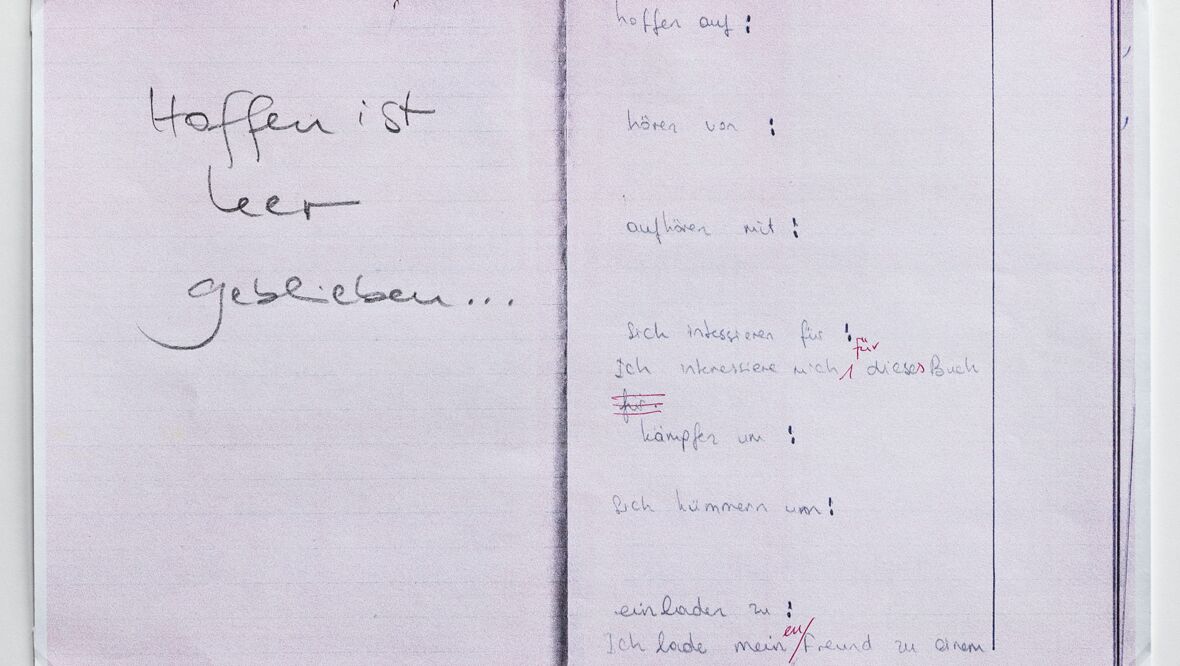 Hoffen ist
leer
geblieben...
hoffen auf :
hören von :
aufhören mit :
sich intessieren für :
für
Ich interessiere mich / dieses Buch
für.
kämpfen um :
sich kümmern um :
einladen zu :
en
Ich lade mein / Freund zu einem